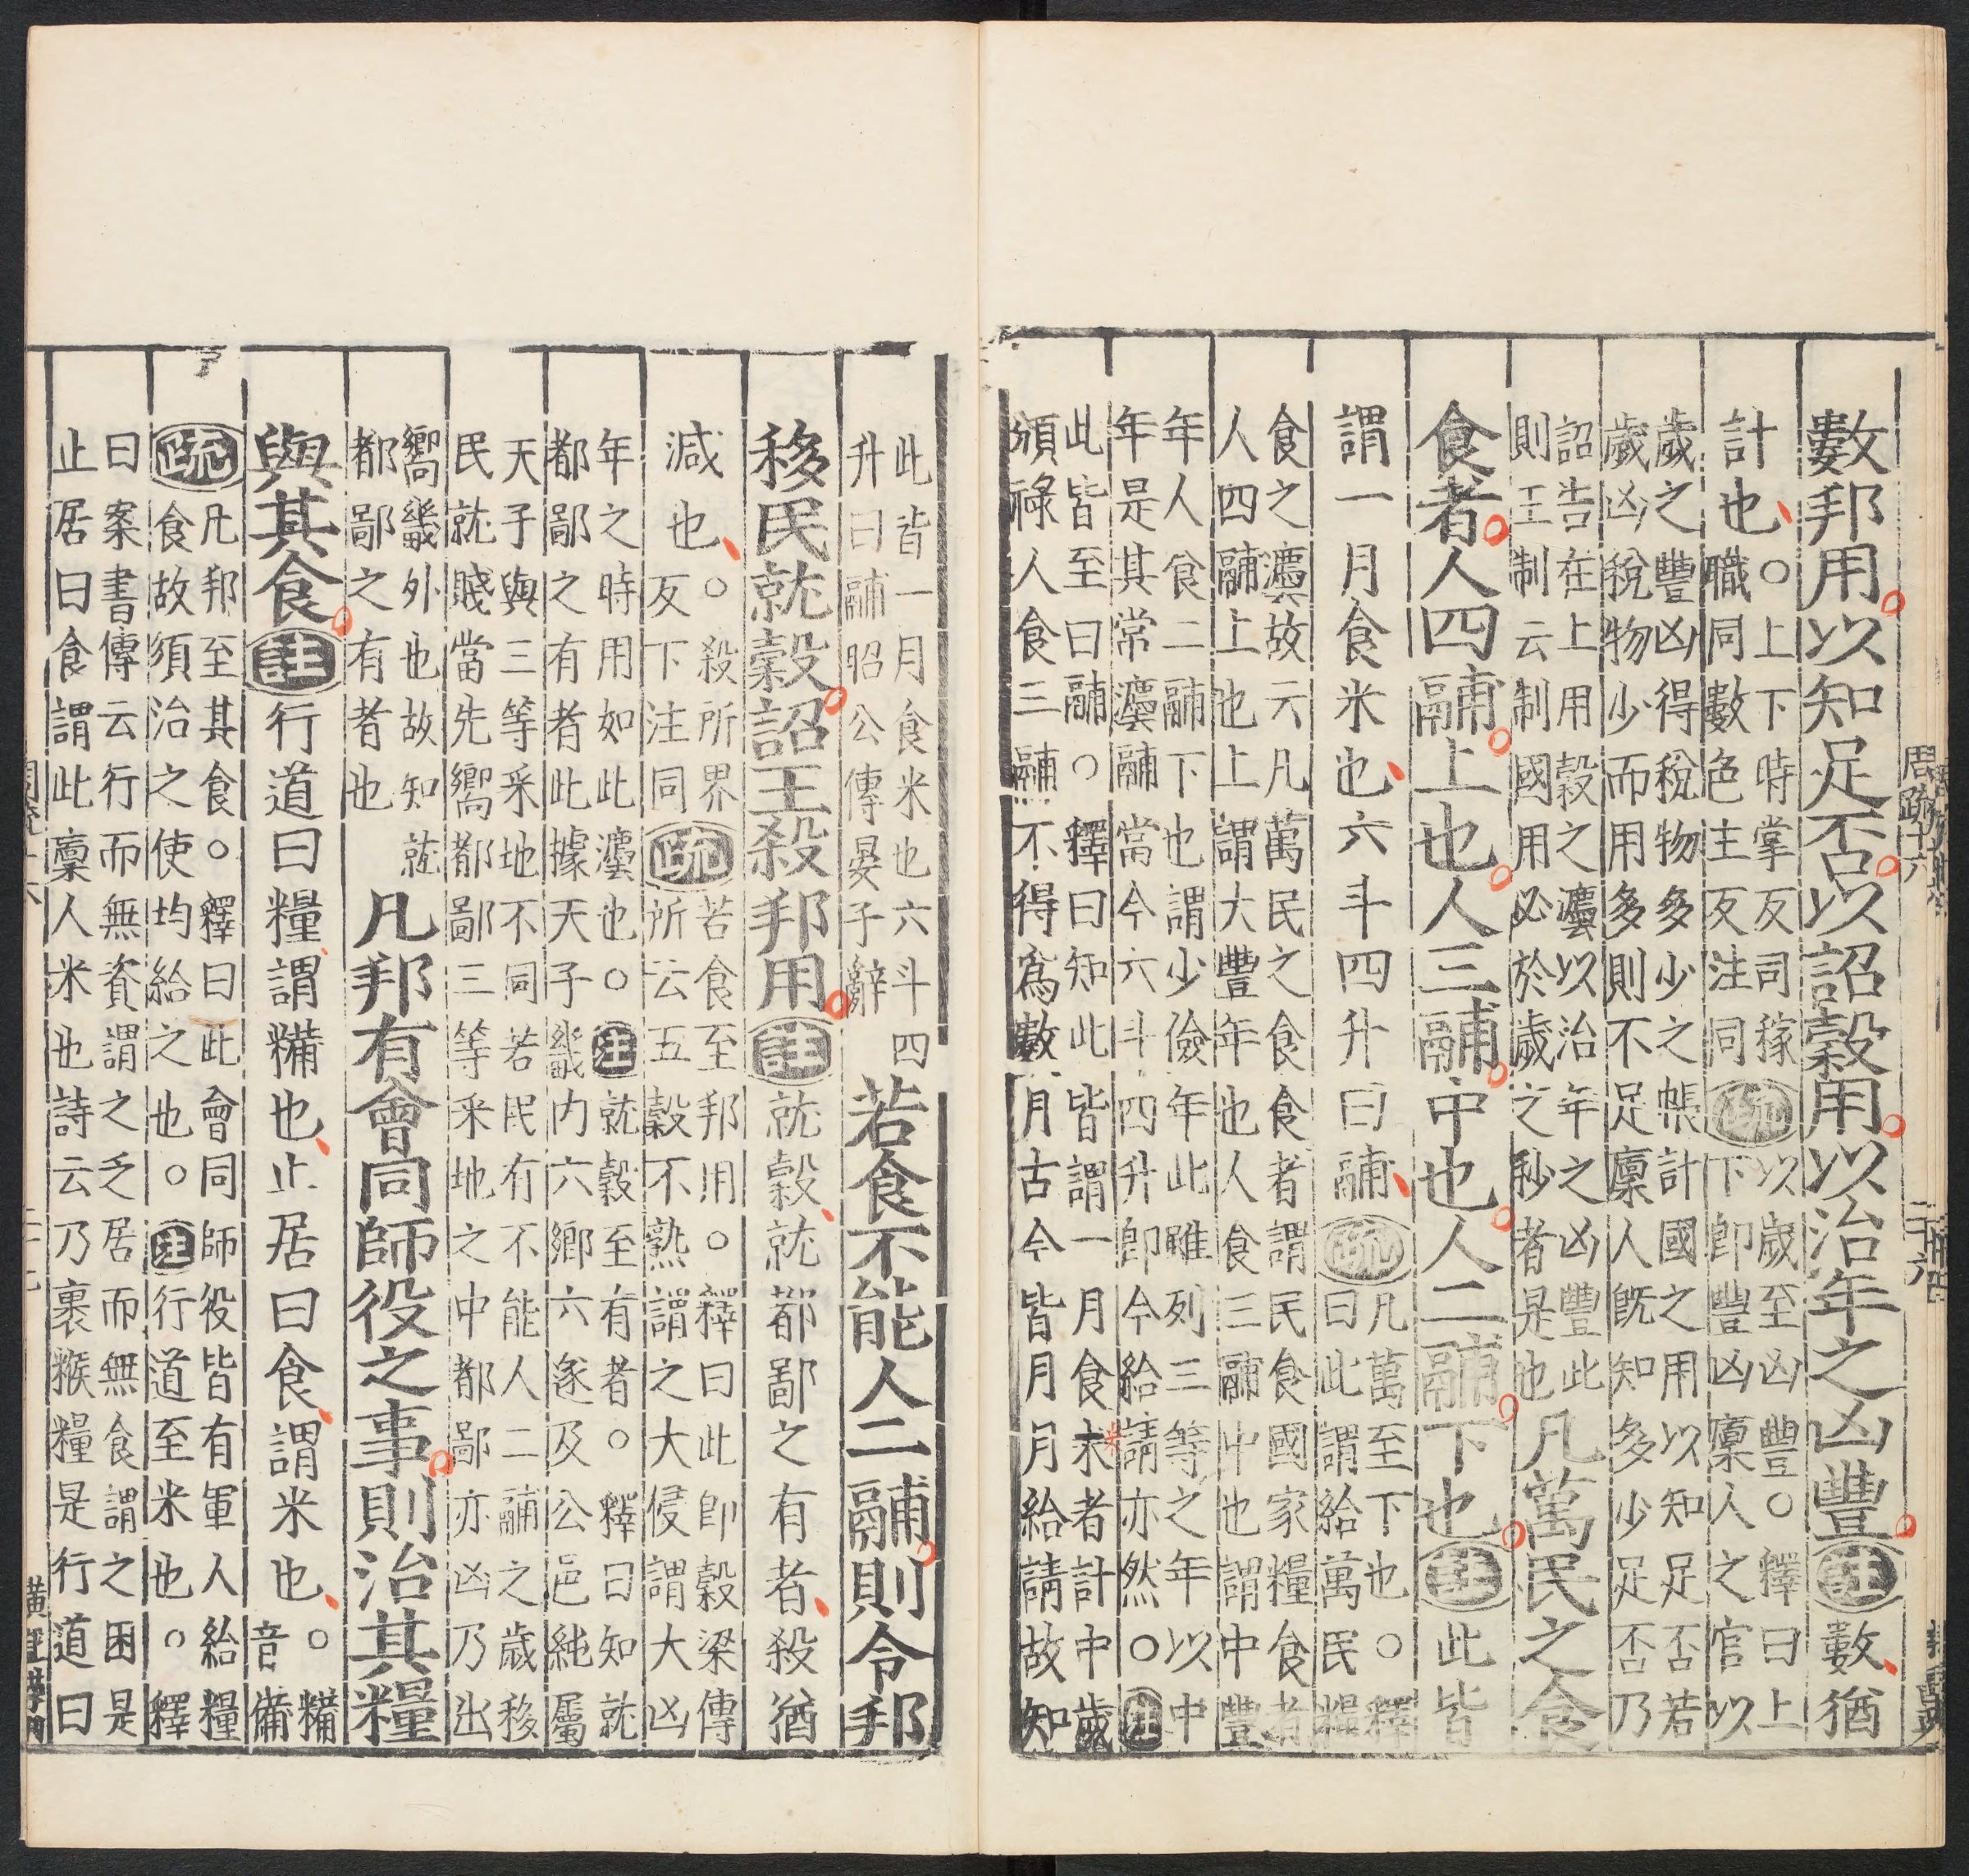 數邦用以知足否以詔穀用以治年之凶豐註數猶
計也
○上下時掌反司稼
職同數色主反注同
疏
以歲至凶豐○釋曰上
下即豐凶廩人之官以
歲之豐凶得稅物多少之帳計國之用以知足否若
歲凶稅物少而用多則不足廩人既知多少足否乃
詔告在上用穀之灋以治年之凶豐此
則王制云制國用必於歲之杪者是也
凡萬民之食
食者人四鬴上也人三鬴中也人二鬴下也註此皆
謂一月食米也六斗四升曰鬴疏
凡萬至下也○釋
曰此謂給萬民糧
食之灋故云凡萬民之食食者謂民食國家糧食者
人四鬴上也上謂大豐年也人食三鬴中也謂中豐
年人食二鬴下也謂少儉年此雖列三等之年以中
年是其常灋鬴當今六斗四升即今給請亦然○注
此皆至曰鬴○釋曰知此皆謂一月食未者計中歲
頒祿人食三鬴不得為數月古今皆月月給請故知
此皆一月食米也六斗四
升曰鬴昭公傳晏子辭
若食不能人二鬴則令邦
移民就穀詔王殺邦用註就穀就都鄙之有者殺猶
減也
○殺所界
反下注同
疏
若食至邦用○釋曰此即穀梁傳
所云五穀不熟謂之大侵謂大凶
年之時用如此灋也○注就穀至有者○釋曰知就
都鄙之有者此據天子畿内六鄉六遂及公邑純屬
天子與三等采地不同若民有不能人二鬴之歲移
民就賤當先嚮都鄙三等采地之中都鄙亦凶乃出
嚮畿外也故知就
都鄙之有者也
凡邦有會同師役之事則治其糧
與其食註行道曰糧謂糒也止居曰食謂米也
○糒
音備
疏
凡邦至其食○釋曰此會同師役皆有軍人給糧
食故須治之使均給之也○注行道至米也○釋
曰案書傳云行而無資謂之乏居而無食謂之困是
止居曰食謂此廩人米也詩云乃裹糇糧是行道曰